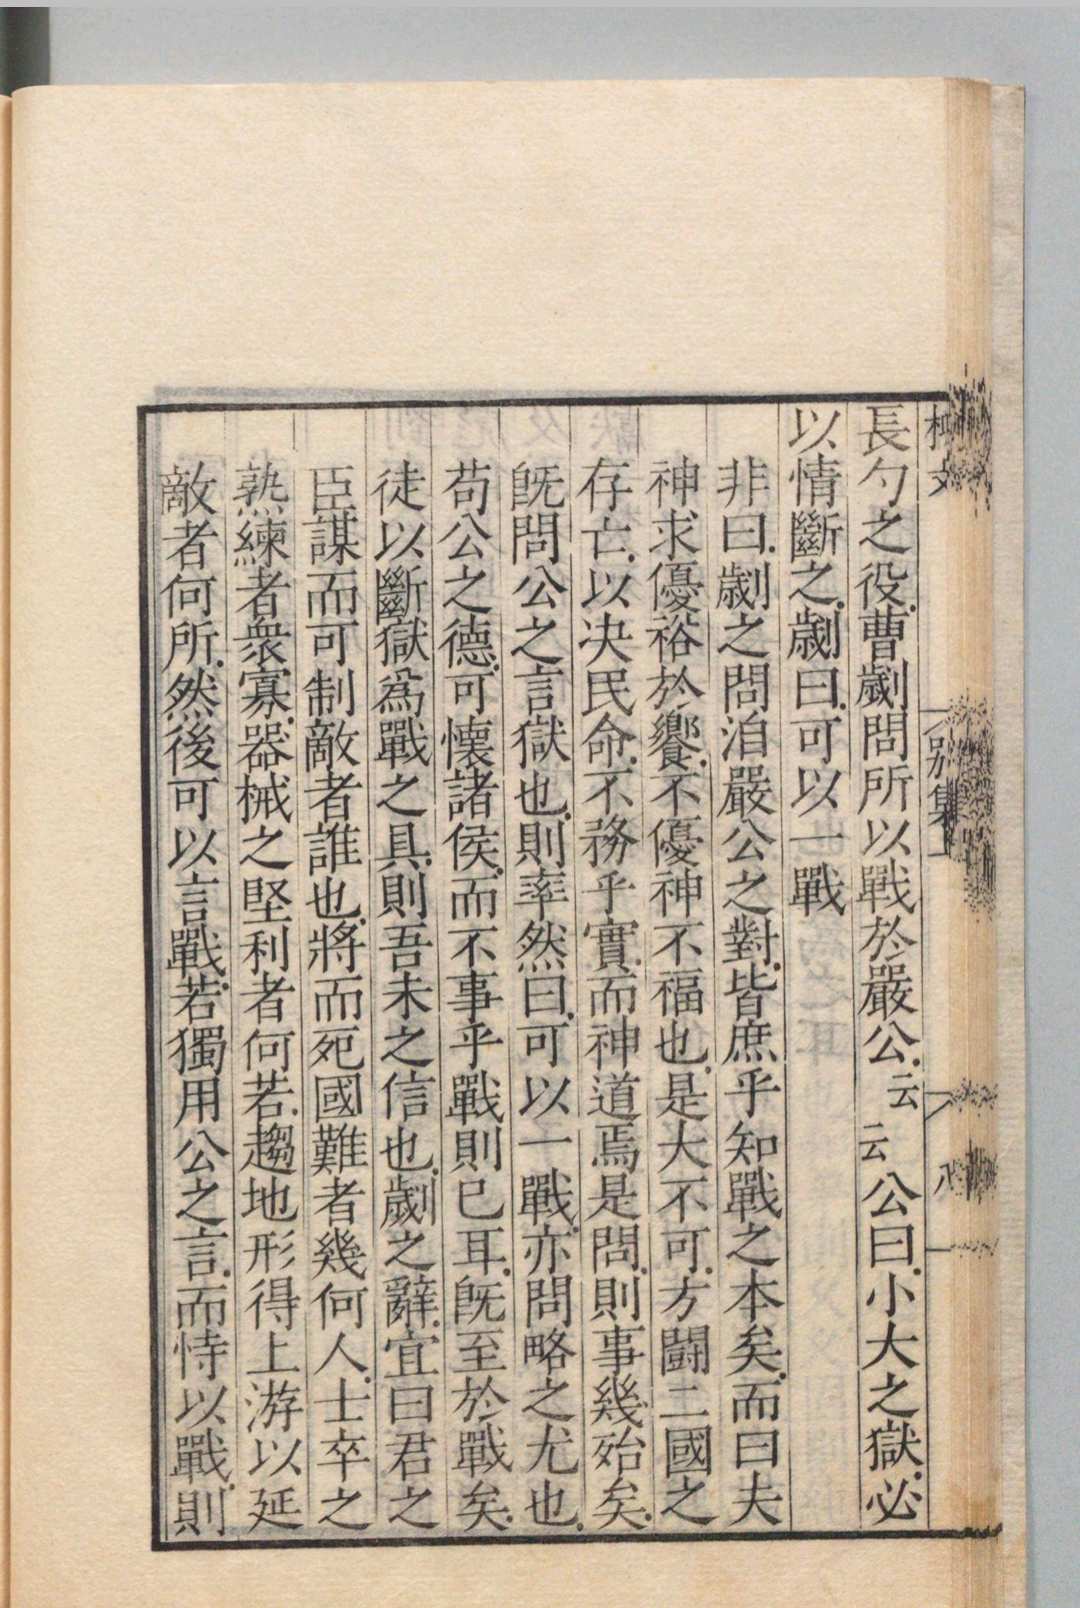 長勺之役曹劌問所以戰於嚴公云云公曰小大之獄必
以情斷之劌曰可以一戰
非曰劌之問洎嚴公之對皆庶乎知戰之本矣而曰夫
神求優裕於饗不優神不福也是大不可方鬭二國之
存亡以決民命不務乎實而神道焉是問則事幾殆矣
旣問公之言獄也則率然曰可以一戰亦問略之尤也
苟公之德可懷諸侯而不事乎戰則已耳旣至於戰矣
徒以斷獄爲戰之具則吾未之信也劌之辭宜曰君之
臣謀而可制敵者誰也將而死國難者幾何人士卒之
熟練者衆寡器械之堅利者何若趨地形得上游以延
敵者何所然後可以言戰若獨用公之言而恃以戰則